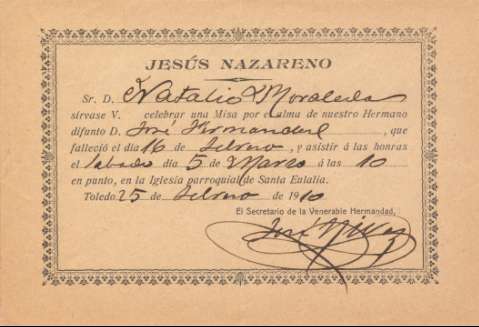 JESÚS NAZARENO
Sr. D. Natalio Moraleda
sírvase V. celebrar una Misa por el alma de nuestro Hermano
difunto D. José Hernández, que
falleció el día 16 de Febrero, y asistir á las honras
el Sabado día 5 de Marzo á las 10
en punto, en la Iglesia parroquial de Santa Eulalia.
Toledo 25 de Febrero de 1910
El Secretario de la Venerable Hermandad,
José